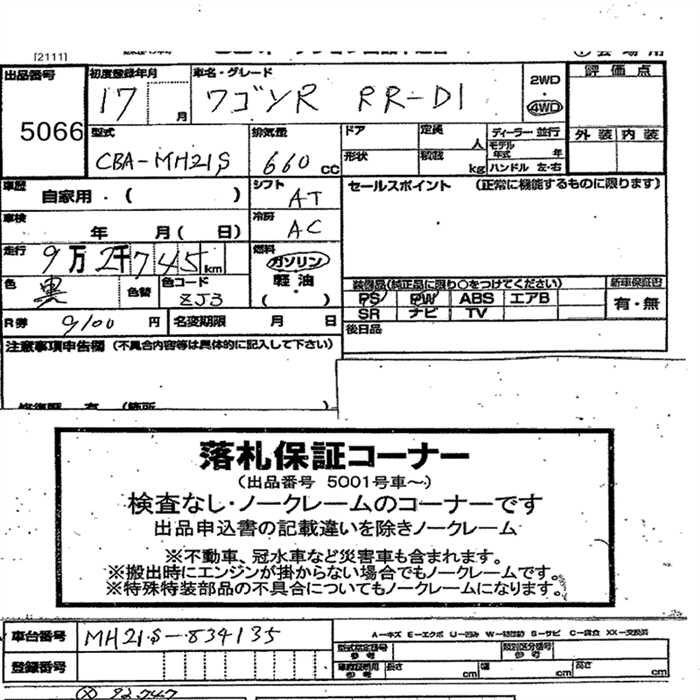 [2111]
出品番号 初度登録年月 車名・グレード 2WD 評価点
5066 17 月 ワゴンR RR-DI 4WD
型式 排気量 ドア 定員 人 ディーラー 並行 外装 内装
CBA-MH21S 660 CC 形状 積載 kg モデル年式 年 ハンドル 左・右
車歴 自家用・( ) シフト AT セールスポイント (正常に機能するものに限ります)
車検 年 月( 日) 冷房 AC
走行 9万2千745km 燃料 ガソリン 軽油・( )
色 黒 色替 色コード ZJ3 装備品(純正品に限り○をつけてください) 新車保証書
PS PW ABS エアB 有・無
SR ナビ TV
R券 9100 円 名変期限 月 日 後日品
注意事項申告欄 (不具合内容等は具体的に記入して下さい)
落札保証コーナー
(出品番号 5001号車〜)
検査なし・ノークレームのコーナーです
出品申込書の記載違いを除きノークレーム
※不動車、冠水車など災害車も含まれます。
※搬出時にエンジンが掛からない場合でもノークレームです。
※特殊特装部品の不具合についてもノークレームになります。
車台番号 MH21S-834135 A-キズ E-エクボ U-凹み S-サビ C-腐食 XX-交換済
登録番号 型式指定番号 参考 類別区分番号 参考
長さ cm 幅 cm 高さ cm